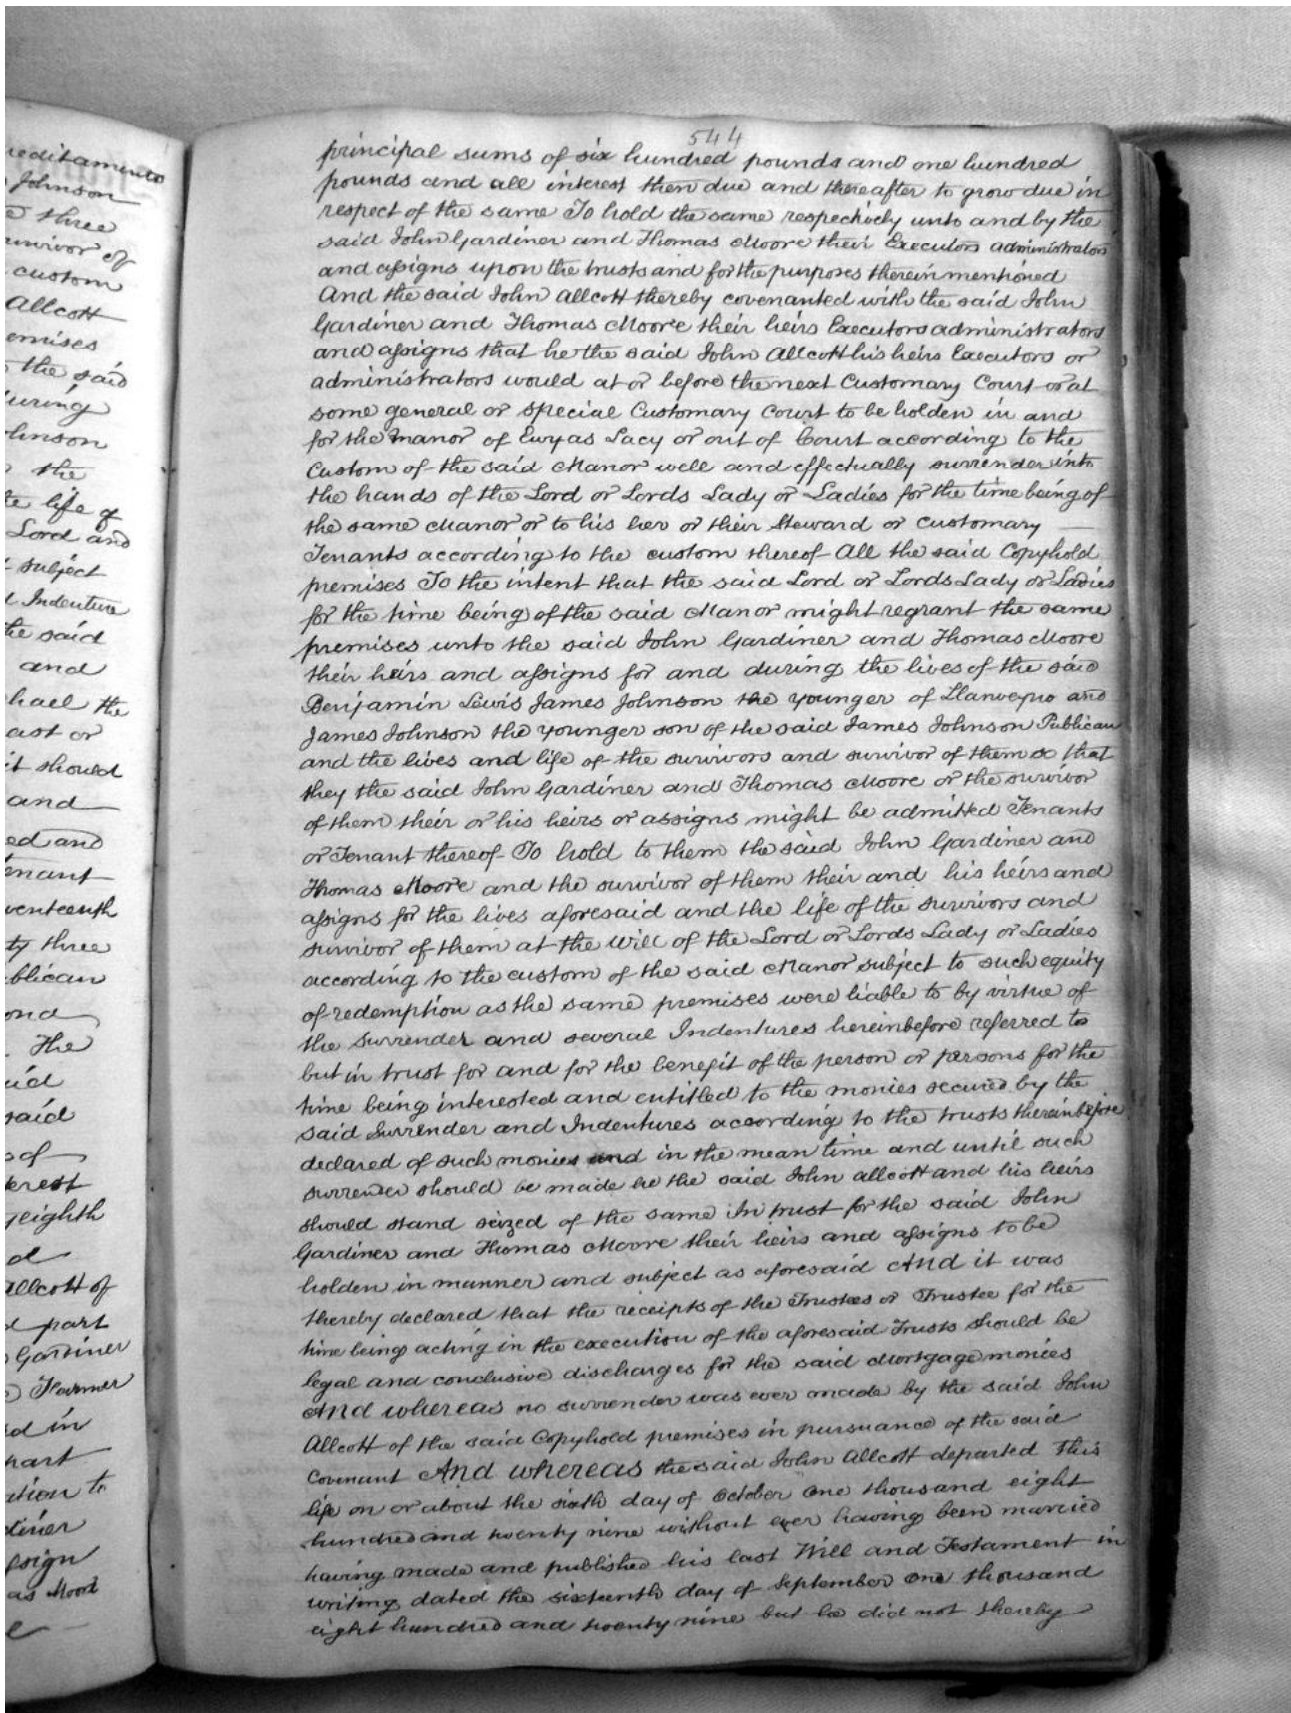 reditaments
Johnson
e three
urvivor of
custom
Allcott
emises
the said
during
ohnson
the
te life of
Lord and
subject
d Indenture
the said
and
hael the
ast or
it should
and
ed and
enant
venteenth
ty three
ublican
ond
The
aid
said
of
erest
y eighth
d
Allcott of
d part
Gardiner
Farmer
d in
part
ation to
diner
ssign
as Moore
544
principal sums of six hundred pounds and one hundred
pounds and all interest then due and thereafter to grow due in
respect of the same To hold the same respectively unto and by the
said John Gardiner and Thomas Moore their Executors administrators
and assigns upon the trusts and for the purposes therein mentioned
And the said John Allcott thereby covenanted with the said John
Gardiner and Thomas Moore their heirs Executors administrators
and assigns that he the said John Allcott his heirs Executors or
administrators would at or before the next Customary Court or at
some general or special Customary Court to be holden in and
for the Manor of Ewyas Lacy or out of Court according to the
Custom of the said Manor well and effectually surrender into
the hands of the Lord or Lords Lady or Ladies for the time being of
the same Manor or to his her or their Steward or Customary
Tenants according to the custom thereof All the said Copyhold
premises To the intent that the said Lord or Lords Lady or Ladies
for the time being of the said Manor might regrant the same
premises unto the said John Gardiner and Thomas Moore
their heirs and assigns for and during the lives of the said
Benjamin Lewis James Johnson the younger of Llanveyno and
James Johnson the younger son of the said James Johnson Publican
and the lives and life of the survivors and survivor of them so that
they the said John Gardiner and Thomas Moore or the survivor
of them their or his heirs or assigns might be admitted Tenants
or Tenant thereof To hold to them the said John Gardiner and
Thomas Moore and the survivor of them their and his heirs and
assigns for the lives aforesaid and the life of the survivors and
survivor of them at the Will of the Lord or Lords Lady or Ladies
according to the custom of the said Manor subject to such equity
of redemption as the same premises were liable to by virtue of
the surrender and several Indentures hereinbefore referred to
but in trust for and for the benefit of the person or persons for the
time being interested and entitled to the monies secured by the
said Surrender and Indentures according to the trusts thereinbefore
declared of such monies and in the mean time and until such
surrender should be made he the said John Allcott and his heirs
should stand seized of the same In trust for the said John
Gardiner and Thomas Moore their heirs and assigns to be
holden in manner and subject as aforesaid And it was
thereby declared that the receipts of the Trustees or Trustee for the
time being acting in the execution of the aforesaid Trusts should be
legal and conclusive discharges for the said Mortgage monies
And whereas no surrender was ever made by the said John
Allcott of the said Copyhold premises in pursuance of the said
Covenant And whereas the said John Allcott departed this
life on or about the sixth day of October one thousand eight
hundred and twenty nine without ever having been married
having made and published his last Will and Testament in
writing dated the sixteenth day of September one thousand
eight hundred and twenty nine but he did not thereby